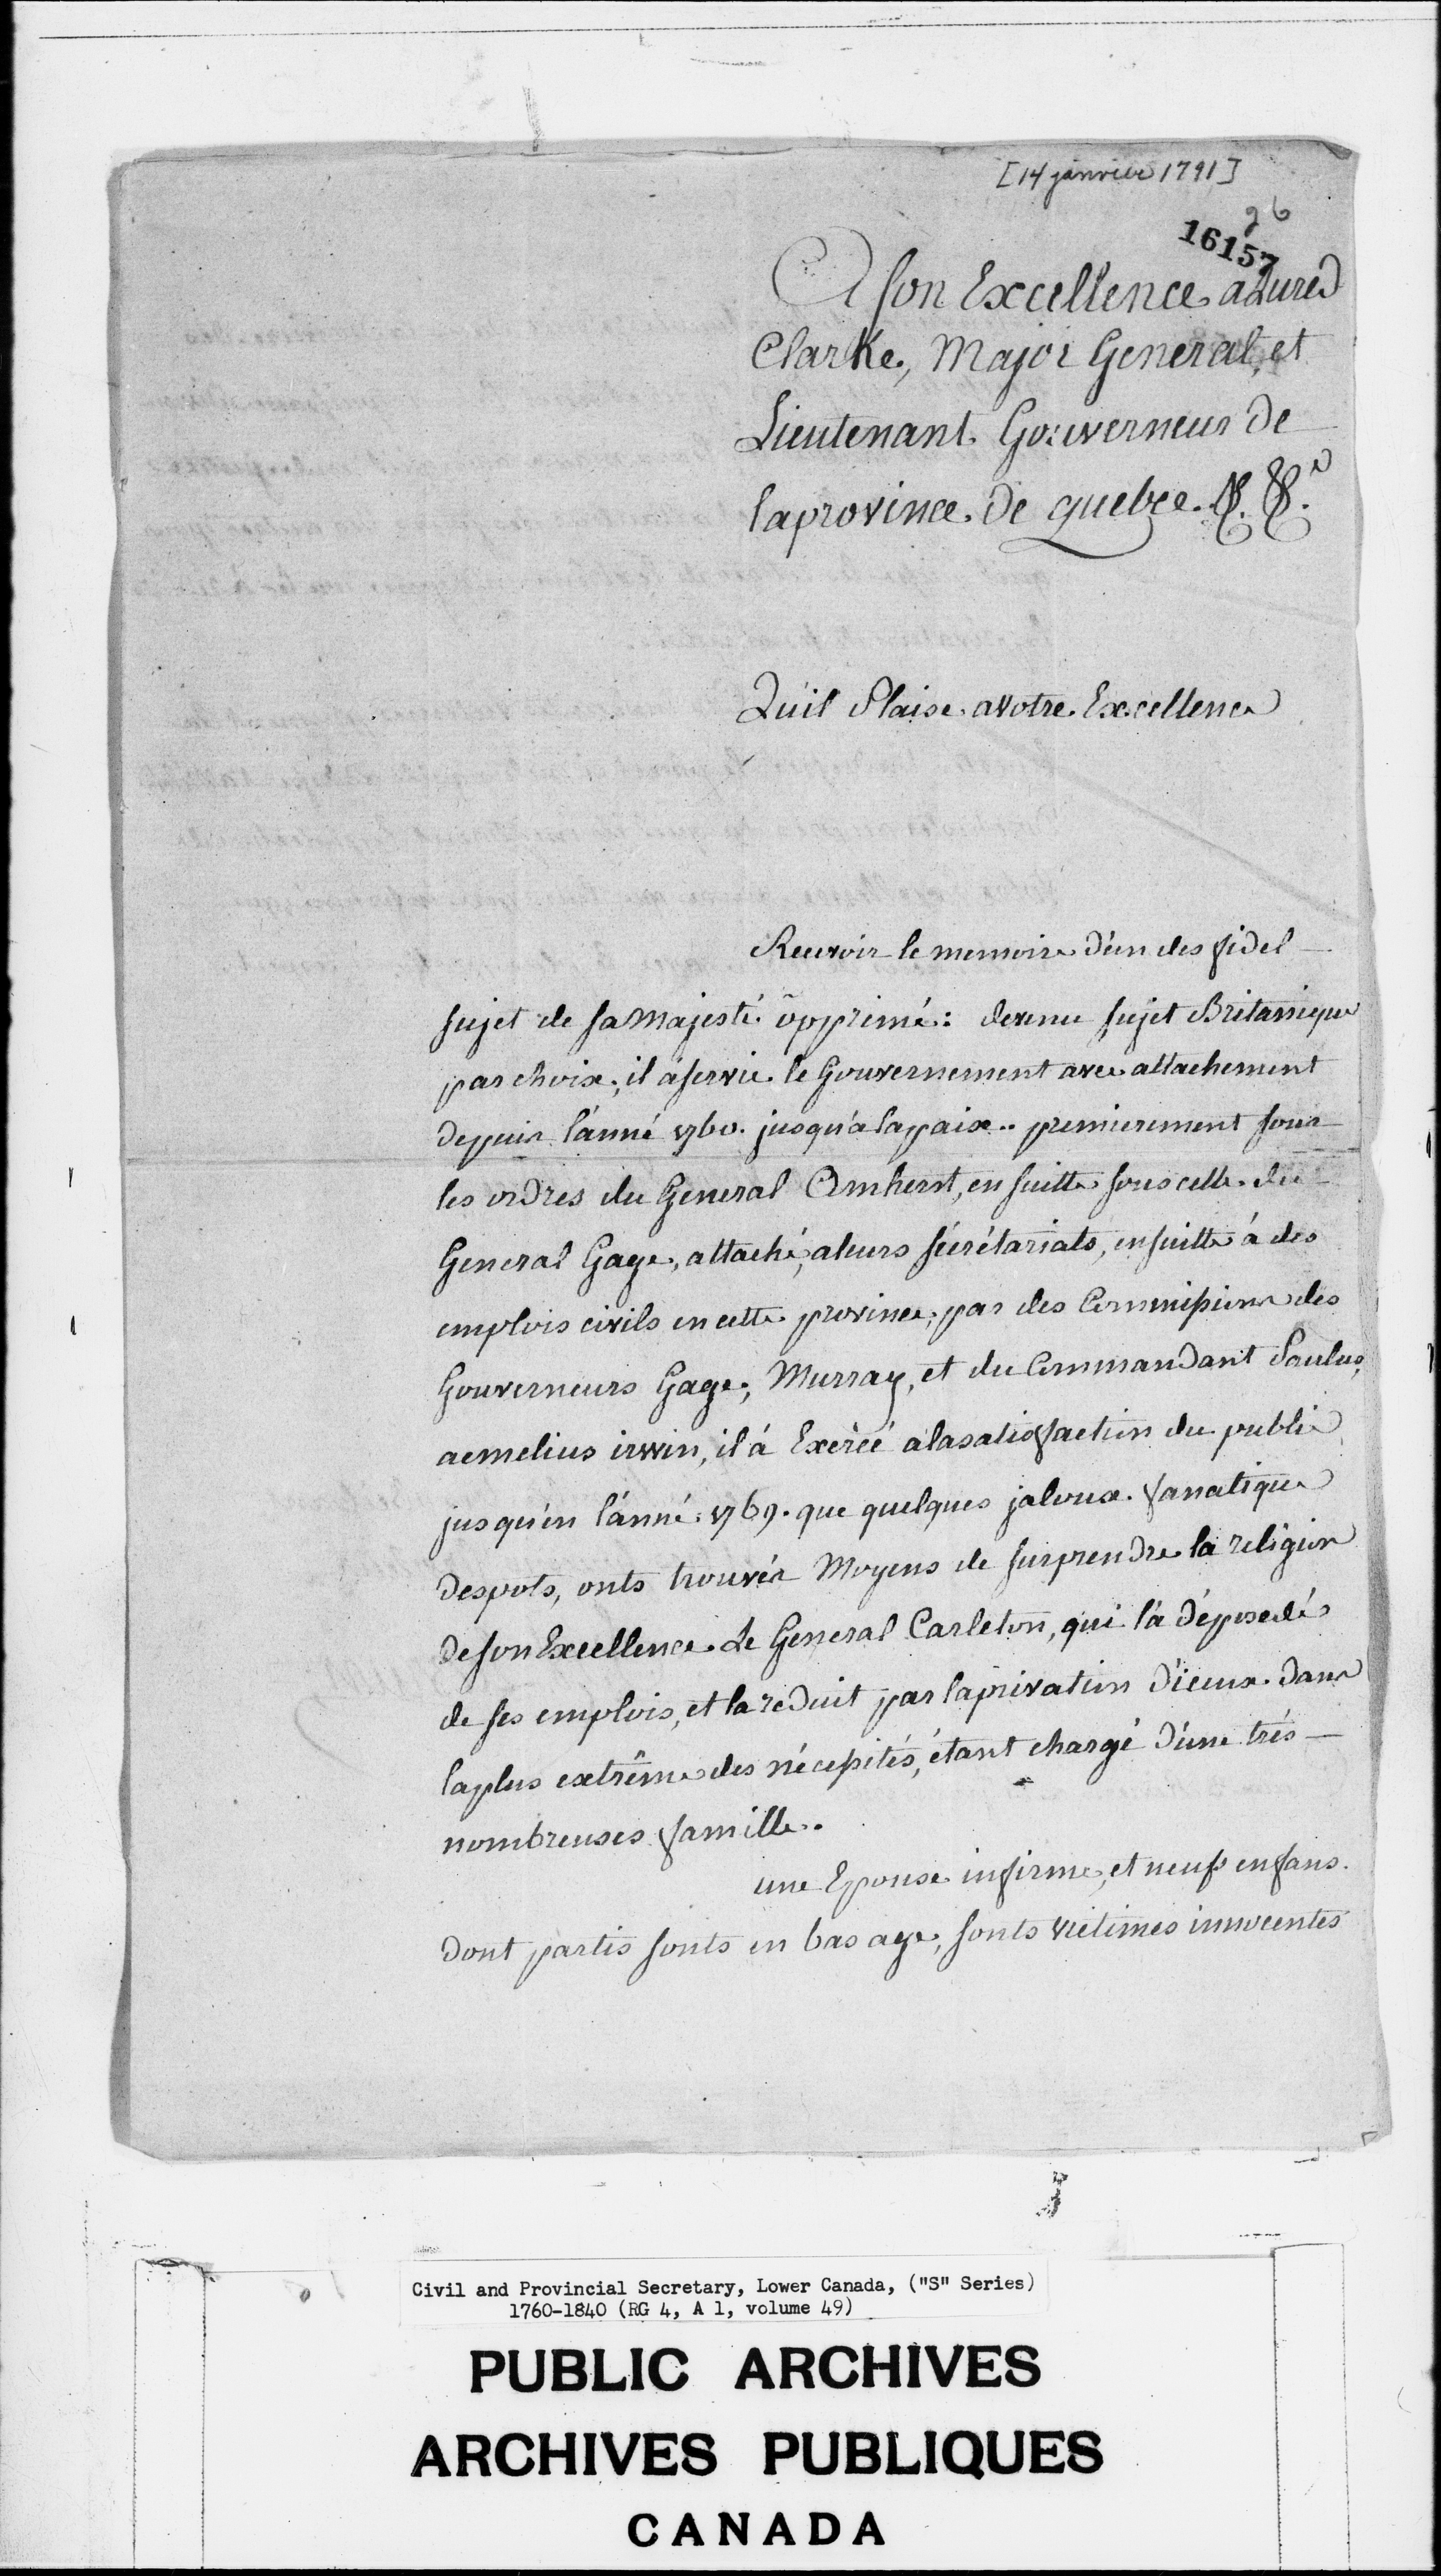 [14 janvier 1791]
26
16157
A son Excellence alured
Clarke, Major General, et
Lieutenant Gouverneur de
laprovince de quebec. &. &.a
Qu'il Plaise avotre Excellence
Recevoir le memoire d'un des fidel
sujet de sa Majesté opprimé: devenu sujet Britanique
par choix, il á servie le Gouvernement avec attachement
depuis l'anné 1760. jusqu'a la paix.. premierement sous
les ordres du General Amherst, ensuitte sous celle du
General Gage, attaché, aleurs sécrétariats, ensuitte á des
emplois civils en cette province, par des Commissions des
Gouverneurs Gage, Murray, et du Commandant Paulus,
aemelius irwin, il á Exercé alasatisfaction du public
jusqu'en l'anné 1769. que quelques jaloux fanatique
despots, onts trouvés Moyens de surprendre la religion
de son Excellence Le General Carleton, qui l'a déposedé
de ses emplois, et la reduit par laprivation d'iceux dans
laplus extrême des nécessités, étant chargé d'une trés
nombreuses famille..
une Epouse infirme, et neufs enfans.
dont partis sonts en bas age, sonts victimes innocentes
Civil and Provincial Secretary, Lower Canada, ("S" Series)
1760-1840 (RG 4, A 1, volume 49)
PUBLIC ARCHIVES
ARCHIVES PUBLIQUES
CANADA